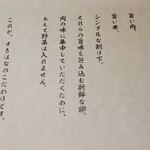 旨い肉、
旨い米、
シンプルな割り下。
それらの旨味を包み込む新鮮な卵。
肉の味に集中していただくために、
あえて野菜は入れません。
これが、すきはなのこだわりです。